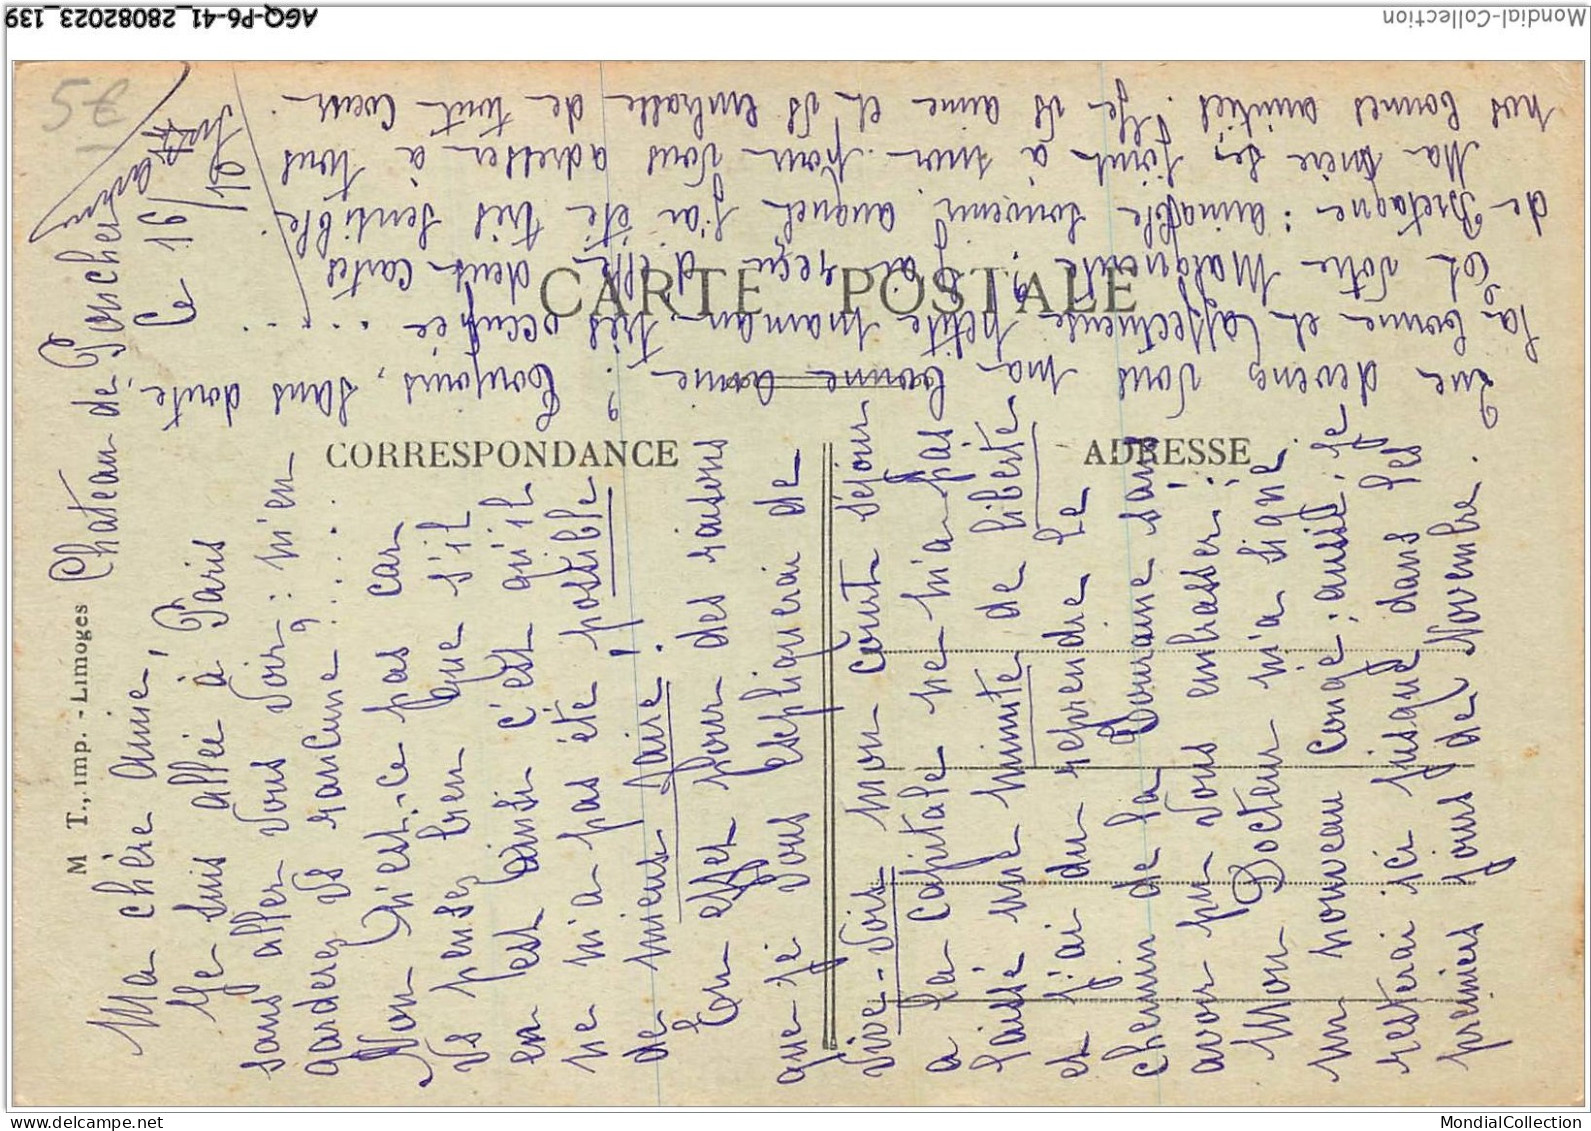 AGQ-P6-41_28082023_139
Mondial-Collection
5€
CARTE POSTALE
CORRESPONDANCE
ADRESSE
M T., imp. - Limoges
Chateau de
Ce 16/10
Ma chère amie,
Je suis allée à Paris
sans aller vous voir : m'en
garderez vs rancune ? : .....
Non n'est-ce pas car
vs pensez bien que s'il
en est ainsi c'est qu'il
ne m'a pas été possible
de mieux faire !
En effet pour des raisons
que je vous expliquerai de
vive-voix mon court séjour
a la capitale ne m'a pas
laissé une minute de liberté
et j'ai du reprendre le
chemin de la Touraine sans
avoir pu vous embrasser : ..
Mon Docteur m'a signé
un nouveau congé ; aussi je
resterai ici jusque dans les
premiers jours de Novembre.
Que devenez vous ma bonne amie ? Toujours, sans doute,
la bonne et affectueuse petite maman très occupée ....
de votre Marguerite ; j'ai reçu d'elle deux cartes
de Bretagne : aimable souvenir auquel j'ai été très sensible.
Ma mère se joint à moi pour vous adresser à tous
nos bonnes amitiés. Je vs aime et vs embrasse de tout coeur.
www.delcampe.net
MondialCollection